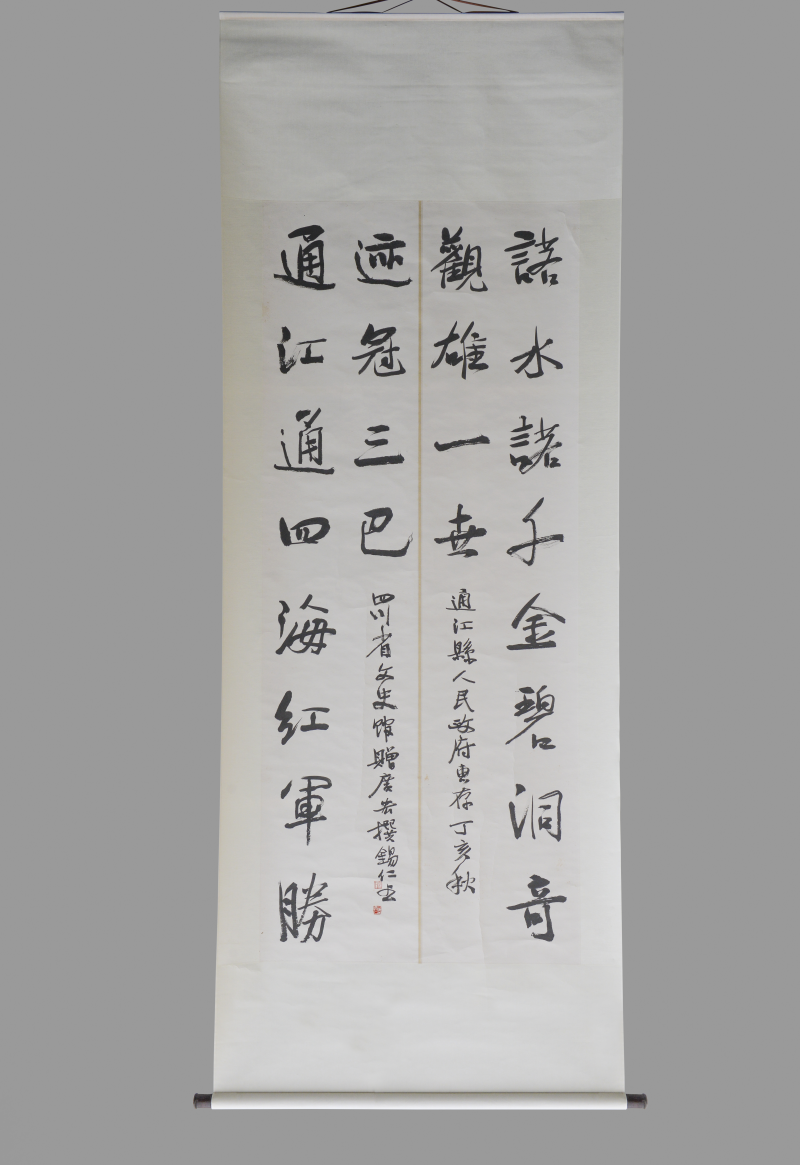 諾水諾千金碧洞奇
觀雄一世
通江縣人民政府惠存丁亥秋
通江通四海紅軍勝
迹冠三巴
四川省文史館贈廣安撰錫仁書